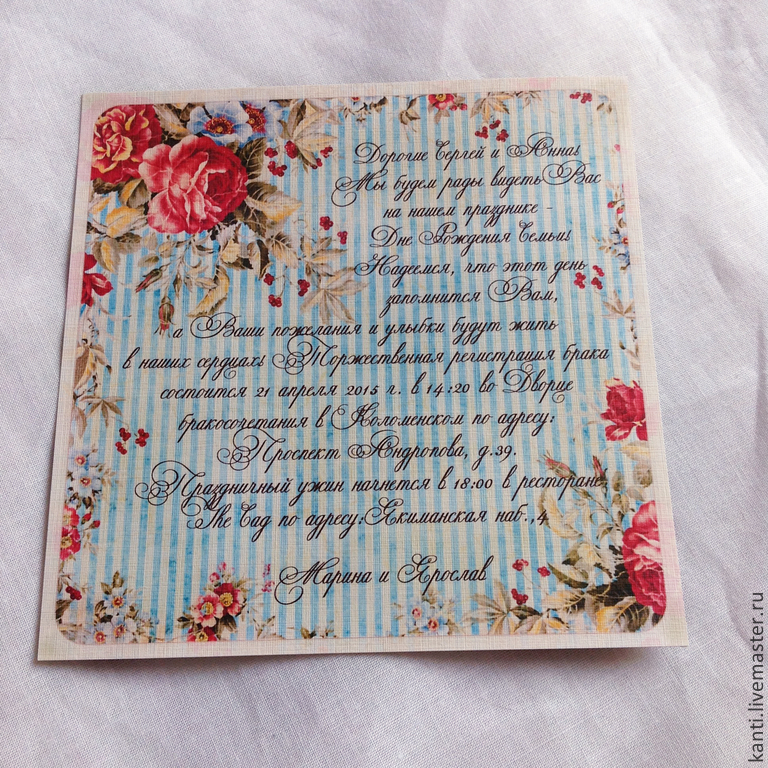 Дорогие Сергей и Анна!
Мы будем рады видеть Вас
на нашем празднике -
Дне Рождения Семьи!
Надеемся, что этот день
запомнится Вам,
а Ваши пожелания и улыбки будут жить
в наших сердцах! Торжественная регистрация брака
состоится 21 апреля 2015 г. в 14:20 во Дворце
бракосочетания в Коломенском по адресу:
Проспект Андропова, д.39.
Праздничный ужин начнется в 18:00 в ресторане
The Сад по адресу: Якиманская наб.,4
Марина и Ярослав
kanti.livemaster.ru